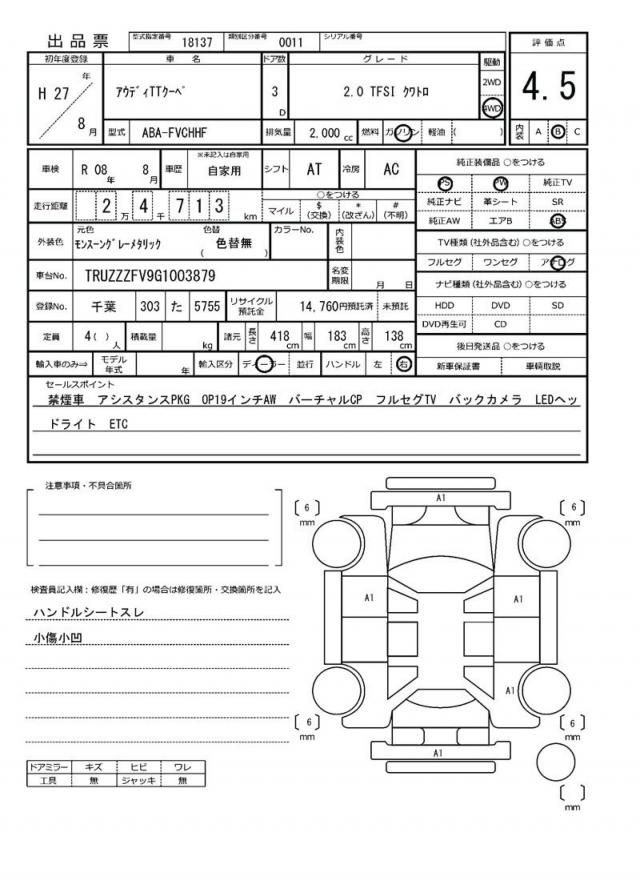 出品票 型式指定番号 18137 類別区分番号 0011 シリアル番号
評価点
4.5
内装 A B C
初年度登録 車名 ドア数 グレード 駆動
H 27 年 8 月 アウディTTクーペ 3 D 2.0 TFSI クワトロ 2WD 4WD
型式 ABA-FVCHHF 排気量 2,000 cc 燃料 ガソリン 軽油 ( )
車検 R 08 年 8 月 車歴 ※未記入は自家用 自家用 シフト AT 冷房 AC
走行距離 2 万 4 千 7 1 3 km ○をつける マイル $ (交換) * (改ざん) # (不明)
外装色 元色 モンスーングレーメタリック 色替 ( 色替無 ) カラーNo. 内装色
車台No. TRUZZZFV9G1003879 名変期限 月 日
登録No. 千葉 303 た 5755 リサイクル預託金 14,760円預託済 未預託
定員 4( ) 人 積載量 kg 諸元 長さ 418 cm 幅 183 cm 高さ 138 cm
輸入車のみ⇒ モデル年式 年 輸入区分 ディーラー 並行 ハンドル 左 右
純正装備品 ○をつける
PS PW 純正TV
純正ナビ 革シート SR
純正AW エアB ABS
TV種類 (社外品含む) ○をつける
フルセグ ワンセグ アナログ
ナビ種類 (社外品含む) ○をつける
HDD DVD SD
DVD再生可 CD
後日発送品 ○をつける
新車保証書 車輌取説
セールスポイント
禁煙車 アシスタンスPKG OP19インチAW バーチャルCP フルセグTV バックカメラ LEDヘッ
ドライト ETC
注意事項・不具合箇所
検査員記入欄：修復歴「有」の場合は修復箇所・交換箇所を記入
ハンドルシートスレ
小傷小凹
ドアミラー キズ ヒビ ワレ
工具 無 ジャッキ 無
A1
[ 6 ] mm [ 6 ] mm
A1 A1
A1
[ 6 ] mm [ 6 ] mm
A1
[ ] mm